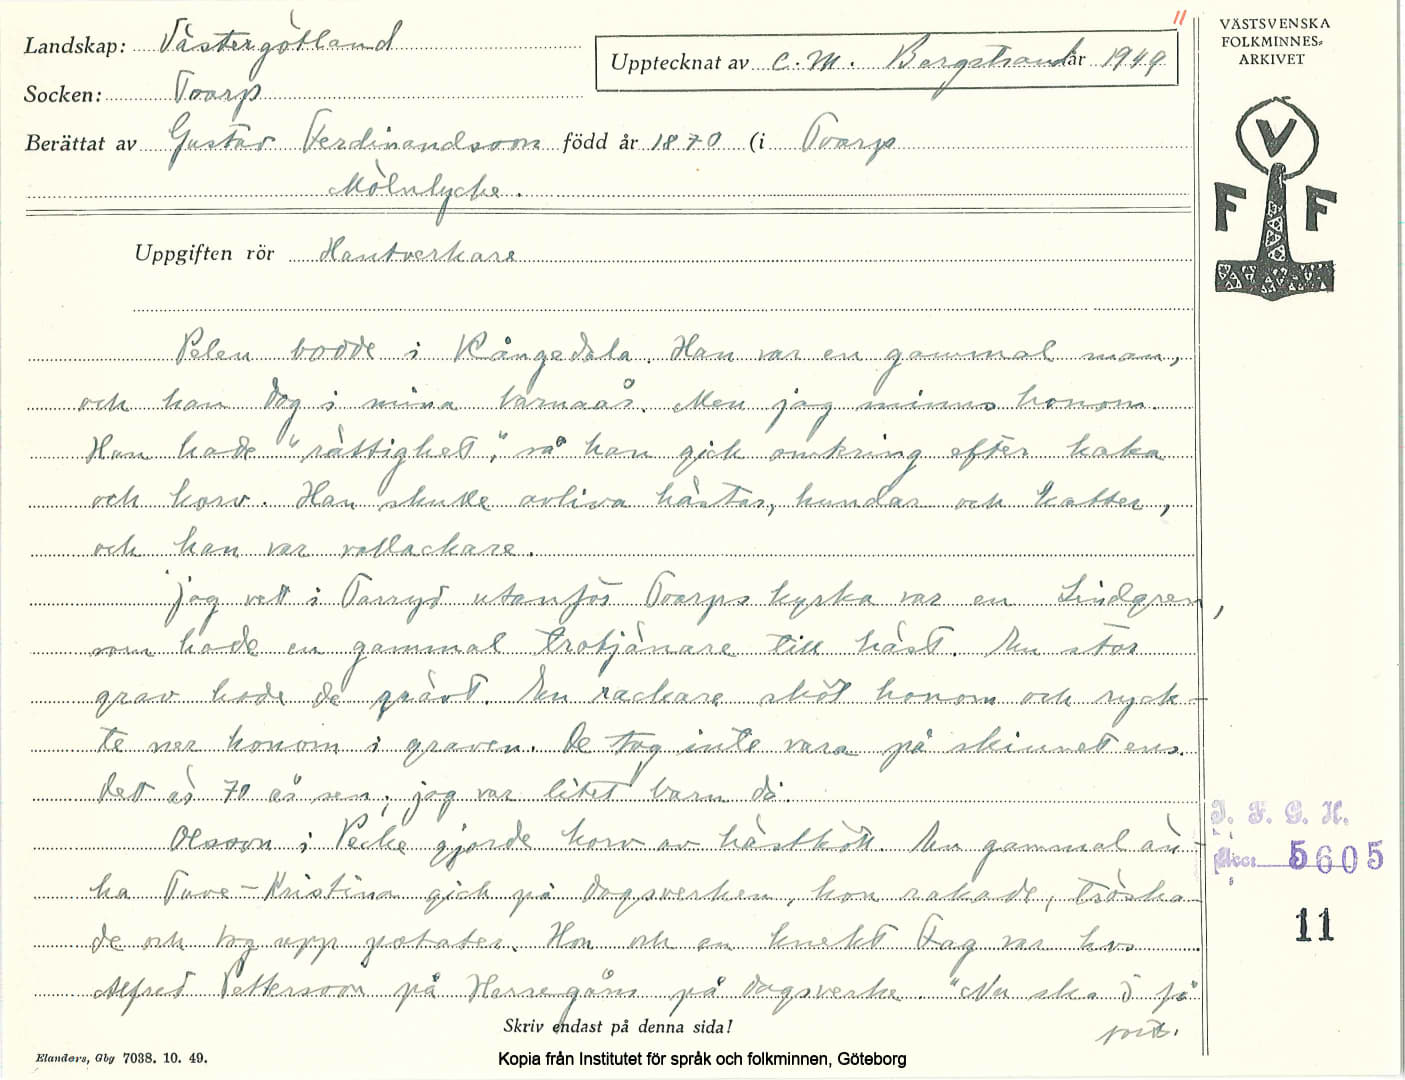 11
VÄSTSVENSKA
FOLKMINNES-
ARKIVET
Landskap: Västergötland
Upptecknat av C. M. Bergstrand år 1949
Socken: Toarp
Berättat av Gustav Ferdinandsson född år 1870 (i Toarp
Mölnlycke.
V
F F
Uppgiften rör Hantverkare
Pelen bodde i Kångedala. Han var en gammal man,
och han dog i mina barnaår. Men jag minns honom.
Han hade "rättighet", så han gick omkring efter kaka
och korv. Han skulle avliva hästar, hundar och katter,
och han var vallackare.
jag vet i Tarryd utanför Toarps kyrka var en Lindgren,
som hade en gammal trotjänare till häst. En stor
grav hade de grävt. En rackare sköt honom och ryck-
te ner honom i graven. De tog inte vara på skinnet ens.
Det är 70 år sen, jag var litet barn då.
Olsson i Pecke gjorde korv av hästkött. En gammal än-
ka Tuve-Kristina gick på dagsverken, hon rakade, tröska-
de och tog upp potater. Hon och en knekt Fag var hos
Alfred Pettersson på Herregårn på dagsverke. "Nu ska I få
Skriv endast på denna sida!
I. F. G. H.
Acc: 5605
11
Elanders, Gbg 7038. 10. 49.
Kopia från Institutet för språk och folkminnen, Göteborg